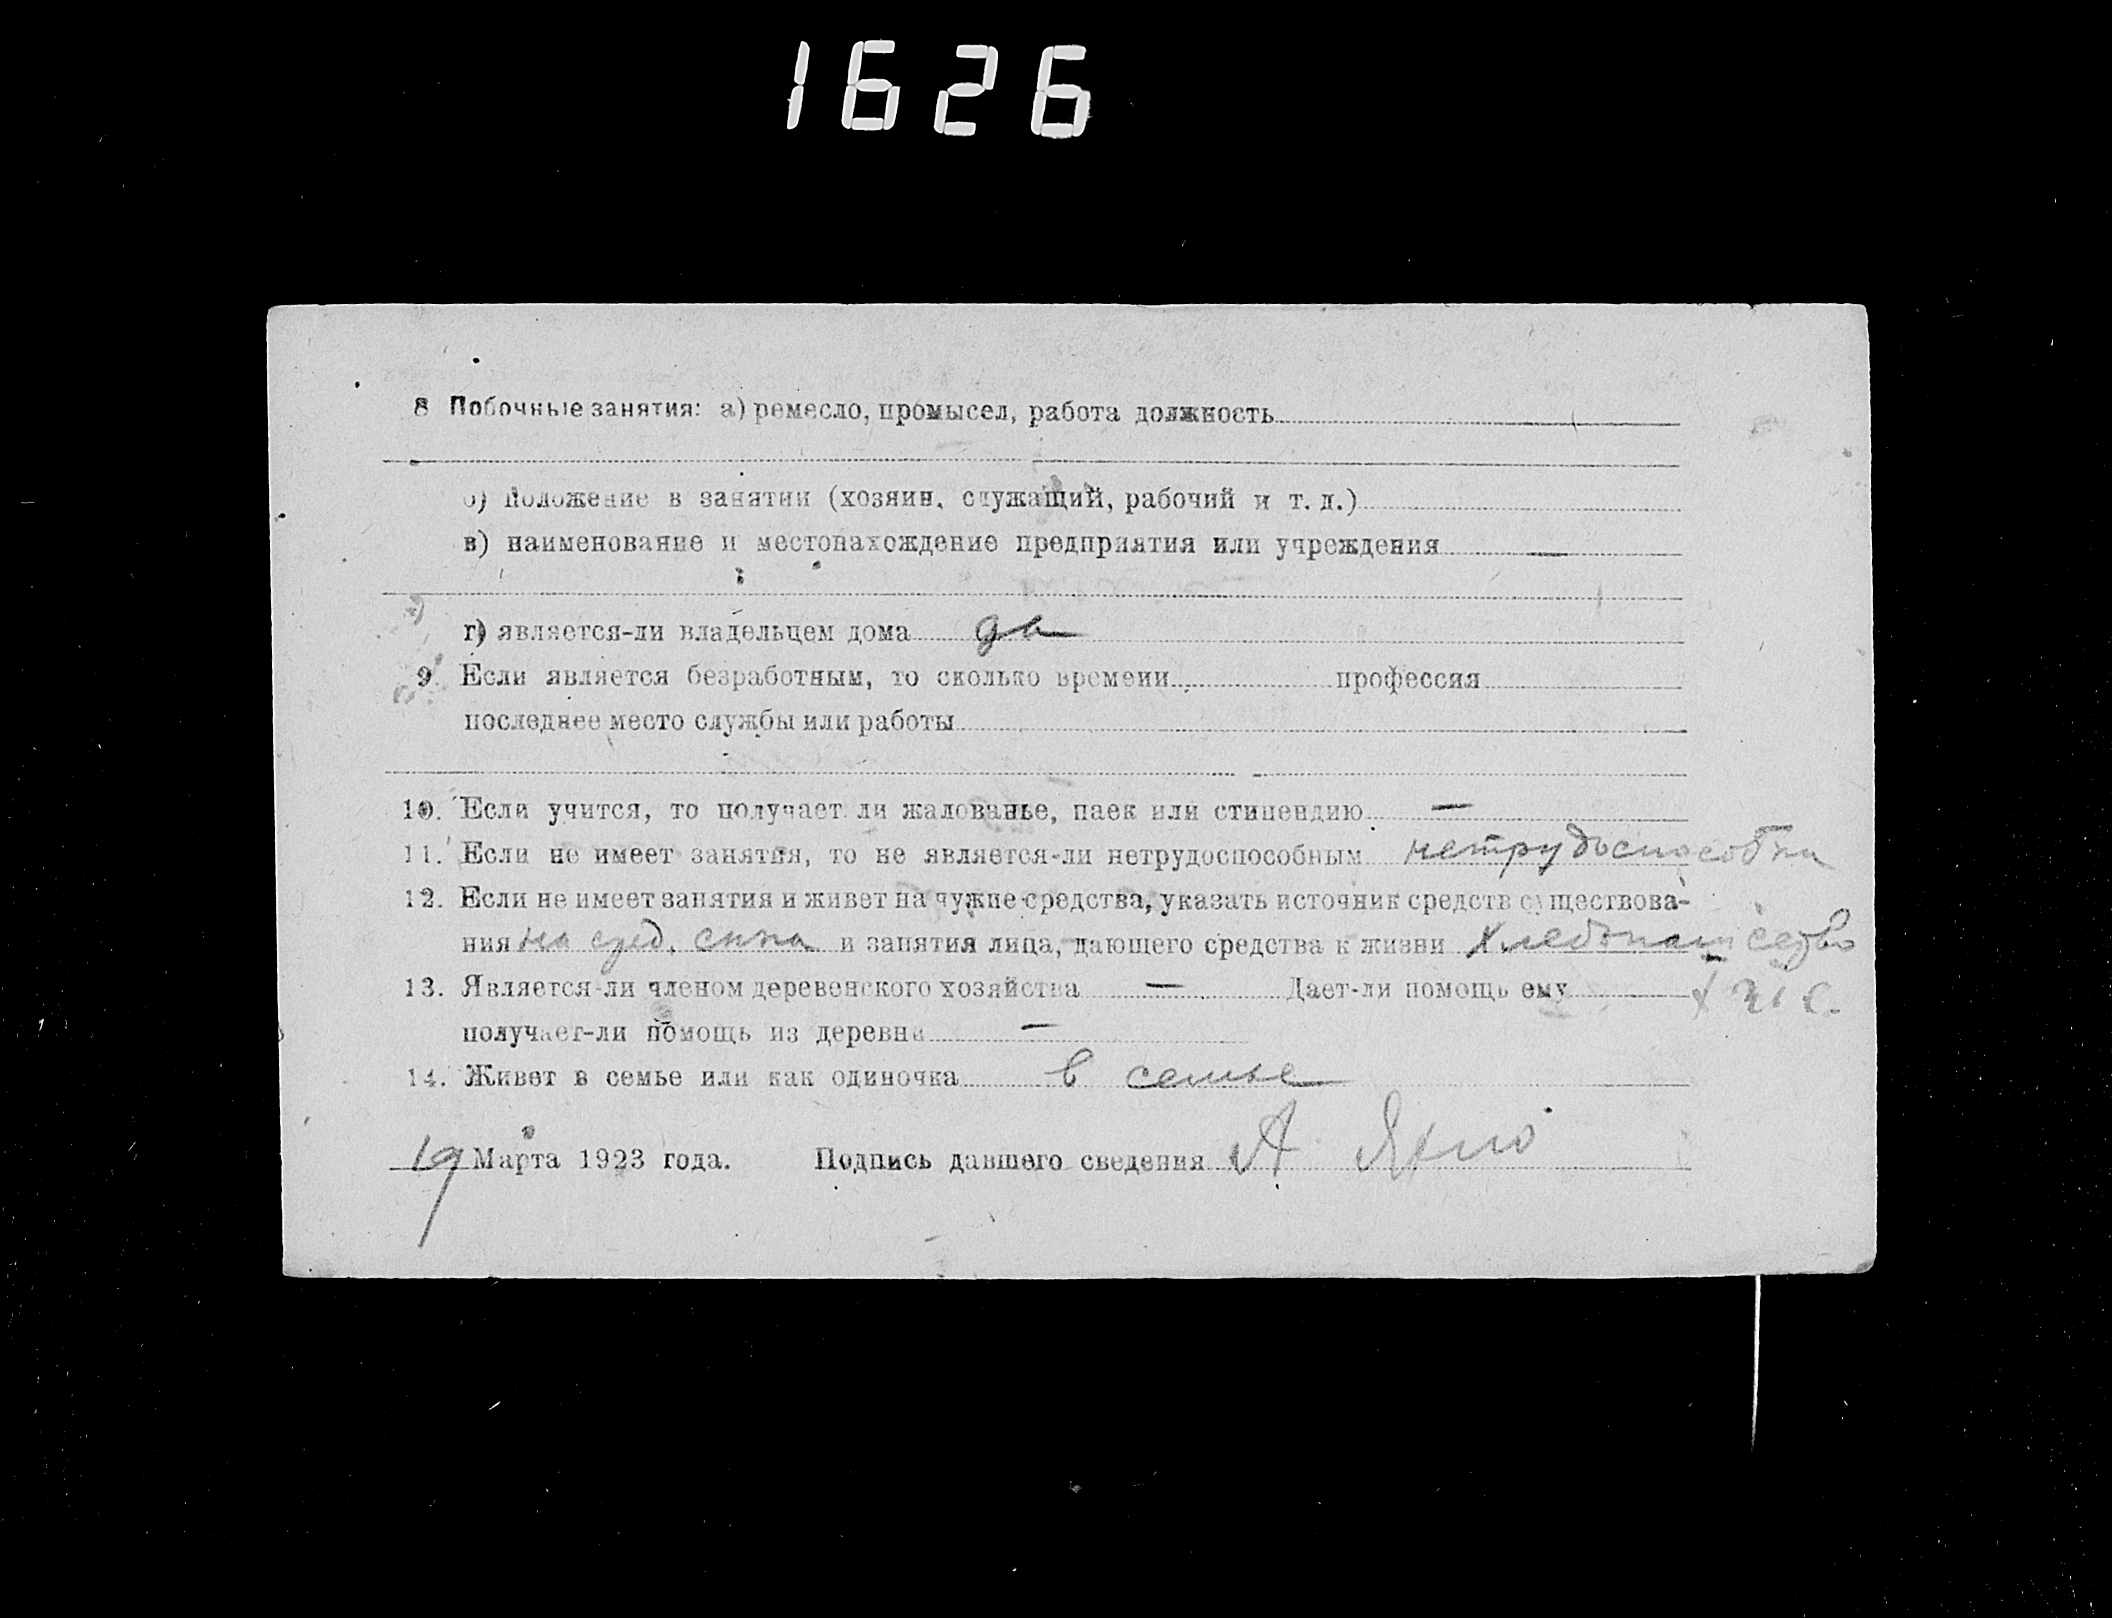 1626
8 Побочные занятия: а) ремесло, промысел, работа должность
б) Положение в занятии (хозяин, служащий, рабочий и т. д.)
в) наименование и местонахождение предприятия или учреждения —
г) является-ли владельцем дома да
9. Если является безработным, то сколько времени профессия
последнее место службы или работы
10. Если учится, то получает ли жалованье, паек или стипендию —
11. Если не имеет занятия, то не является-ли нетрудоспособным нетрудоспособна
12. Если не имеет занятия и живет на чужие средства, указать источник средств существова-
ния на сред. сына и занятия лица, дающего средства к жизни хлебопашество
13. Является-ли членом деревенского хозяйства — Дает-ли помощь ему
получает-ли помощь из деревни —
14. Живет в семье или как одиночка в семье
19 Марта 1923 года. Подпись давшего сведения А